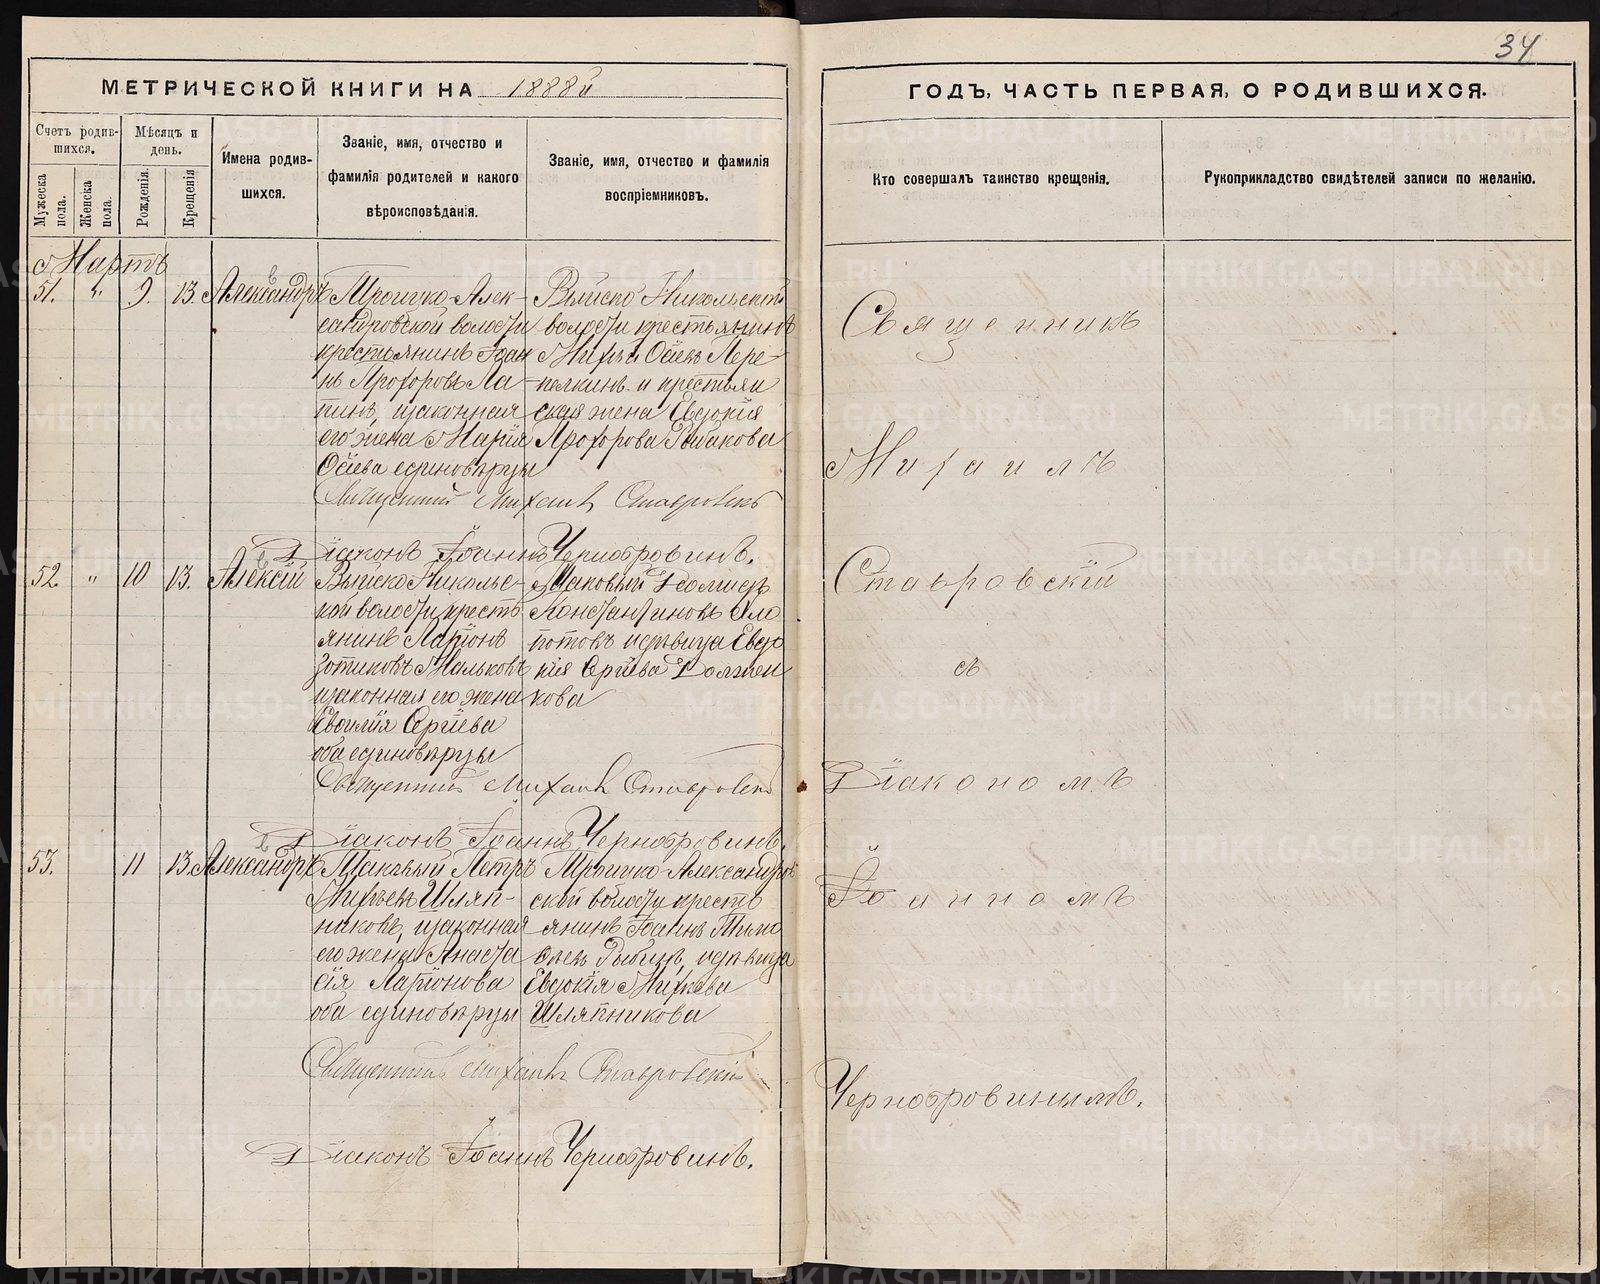 34
МЕТРИЧЕСКОЙ КНИГИ НА 1888й
ГОДЪ, ЧАСТЬ ПЕРВАЯ, О РОДИВШИХСЯ.
Счетъ родив-
шихся.
Мужеска
пола.
Женска
пола.
Мѣсяцъ и
день.
Рожденія.
Крещенія
Имена родив-
шихся.
Званіе, имя, отчество и
фамилія родителей и какого
вѣроисповѣданія.
Званіе, имя, отчество и фамилія
воспріемниковъ.
Кто совершалъ таинство крещенія.
Рукоприкладство свидѣтелей записи по желанію.
Мартъ
51. " 9 13. Александръ
Троицко-Алек-
сандровской волости
крестьянинъ Іоан
нъ Прохоровъ Ла-
пинъ, изаконная
его жена Марія
Осіева единовѣрцы
Выйско Никольской
волости крестьянинъ
Михѣй Осіевъ Пере-
пелкинъ и крестьян
ская жена Евдокія
Прохорова Рыбакова
Священникъ Михаилъ Ставровскій
Діаконъ Іоаннъ Чернобровинъ.
52 " 10 13. Алексій
Выйско Никольс-
кой волости кресть
янинъ Ларіонъ
Зотиковъ Мальковъ
изаконная его жена
Сергіева
оба единовѣрцы
Константиновъ Хло
потовъ идѣвица Евдо
кія Сергіева Должен
кова
Священникъ Михаилъ Ставровскій
Діаконъ Іоаннъ Чернобровинъ.
53. 11 13. Александръ
Петръ
Михѣевъ Шляп-
никовъ, изаконная
его жена Анаста
сія Ларіонова
оба единовѣрцы
Троицко-Александров
ской волости кресть
янинъ Іоаннъ Тимо
Рыбинъ, идѣвица
Евдокія Михѣева
Шляпникова
Священникъ Михаилъ Ставровскій
Діаконъ Іоаннъ Чернобровинъ.
Священникъ
Михаилъ
Ставровскій
съ
Діакономъ
Іоанномъ
Чернобровинымъ.
METRIKI.GASO-URAL.RU